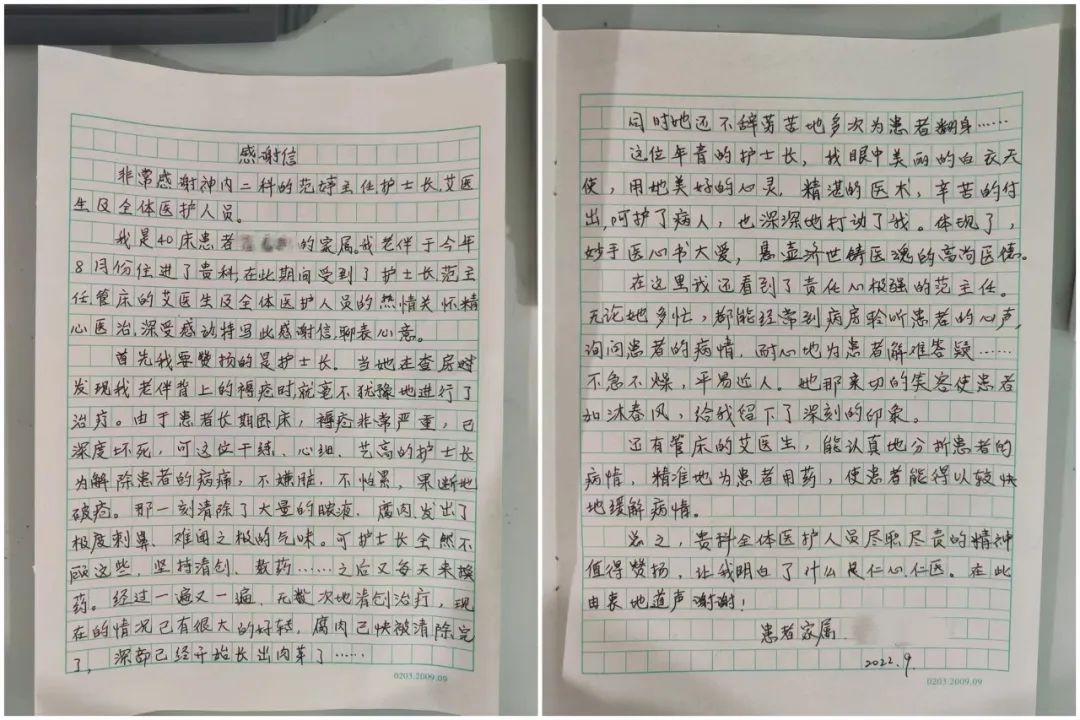 感谢信
非常感谢神内二科的范婷主任护士长、艾医
生及全体医护人员。
我是40床患者 的家属。我老伴于今年
8月份住进了贵科,在此期间受到了护士长、范主
任管床的艾医生及全体医护人员的热情关怀精
心医治,深受感动特写此感谢信,聊表心意。
首先我要赞扬的是护士长。当她在查房时
发现我老伴背上的褥疮时,就毫不犹豫地进行了
治疗。由于患者长期卧床,褥疮非常严重,已
深度坏死,可这位干练、心细、艺高的护士长
为解除患者的病痛,不嫌脏,不怕累,果断地
破疮。那一刻清除了大量的脓液、腐肉,发出了
极度刺鼻、难闻之极的气味。可护士长全然不
顾这些,坚持清创、敷药……之后又每天来换
药。经过一遍又一遍、无数次地清创治疗,现
在的情况已有很大的好转,腐肉已快被清除完
了,深部已经开始长出肉芽了……
0203.2009.09
同时她还不辞劳苦地多次为患者翻身……
这位年青的护士长,我眼中美丽的白衣天
使,用她美好的心灵,精湛的医术,辛苦的付
出,呵护了病人,也深深地打动了我。体现了,
妙手医心书大爱,悬壶济世铸医魂的高尚医德。
在这里我还看到了责任心极强的范主任。
无论她多忙,都能经常到病房聆听患者的心声,
询问患者的病情,耐心地为患者解难答疑……
不急不燥,平易近人。她那亲切的笑容使患者
如沐春风,给我留下了深刻的印象。
还有管床的艾医生,能认真地分析患者的
病情,精准地为患者用药,使患者能得以较快
地缓解病情。
总之,贵科全体医护人员尽职尽责的精神
值得赞扬,让我明白了什么是仁心、仁医。在此
由衷地道声谢谢!
患者家属
2022.9.
0203.2009.09